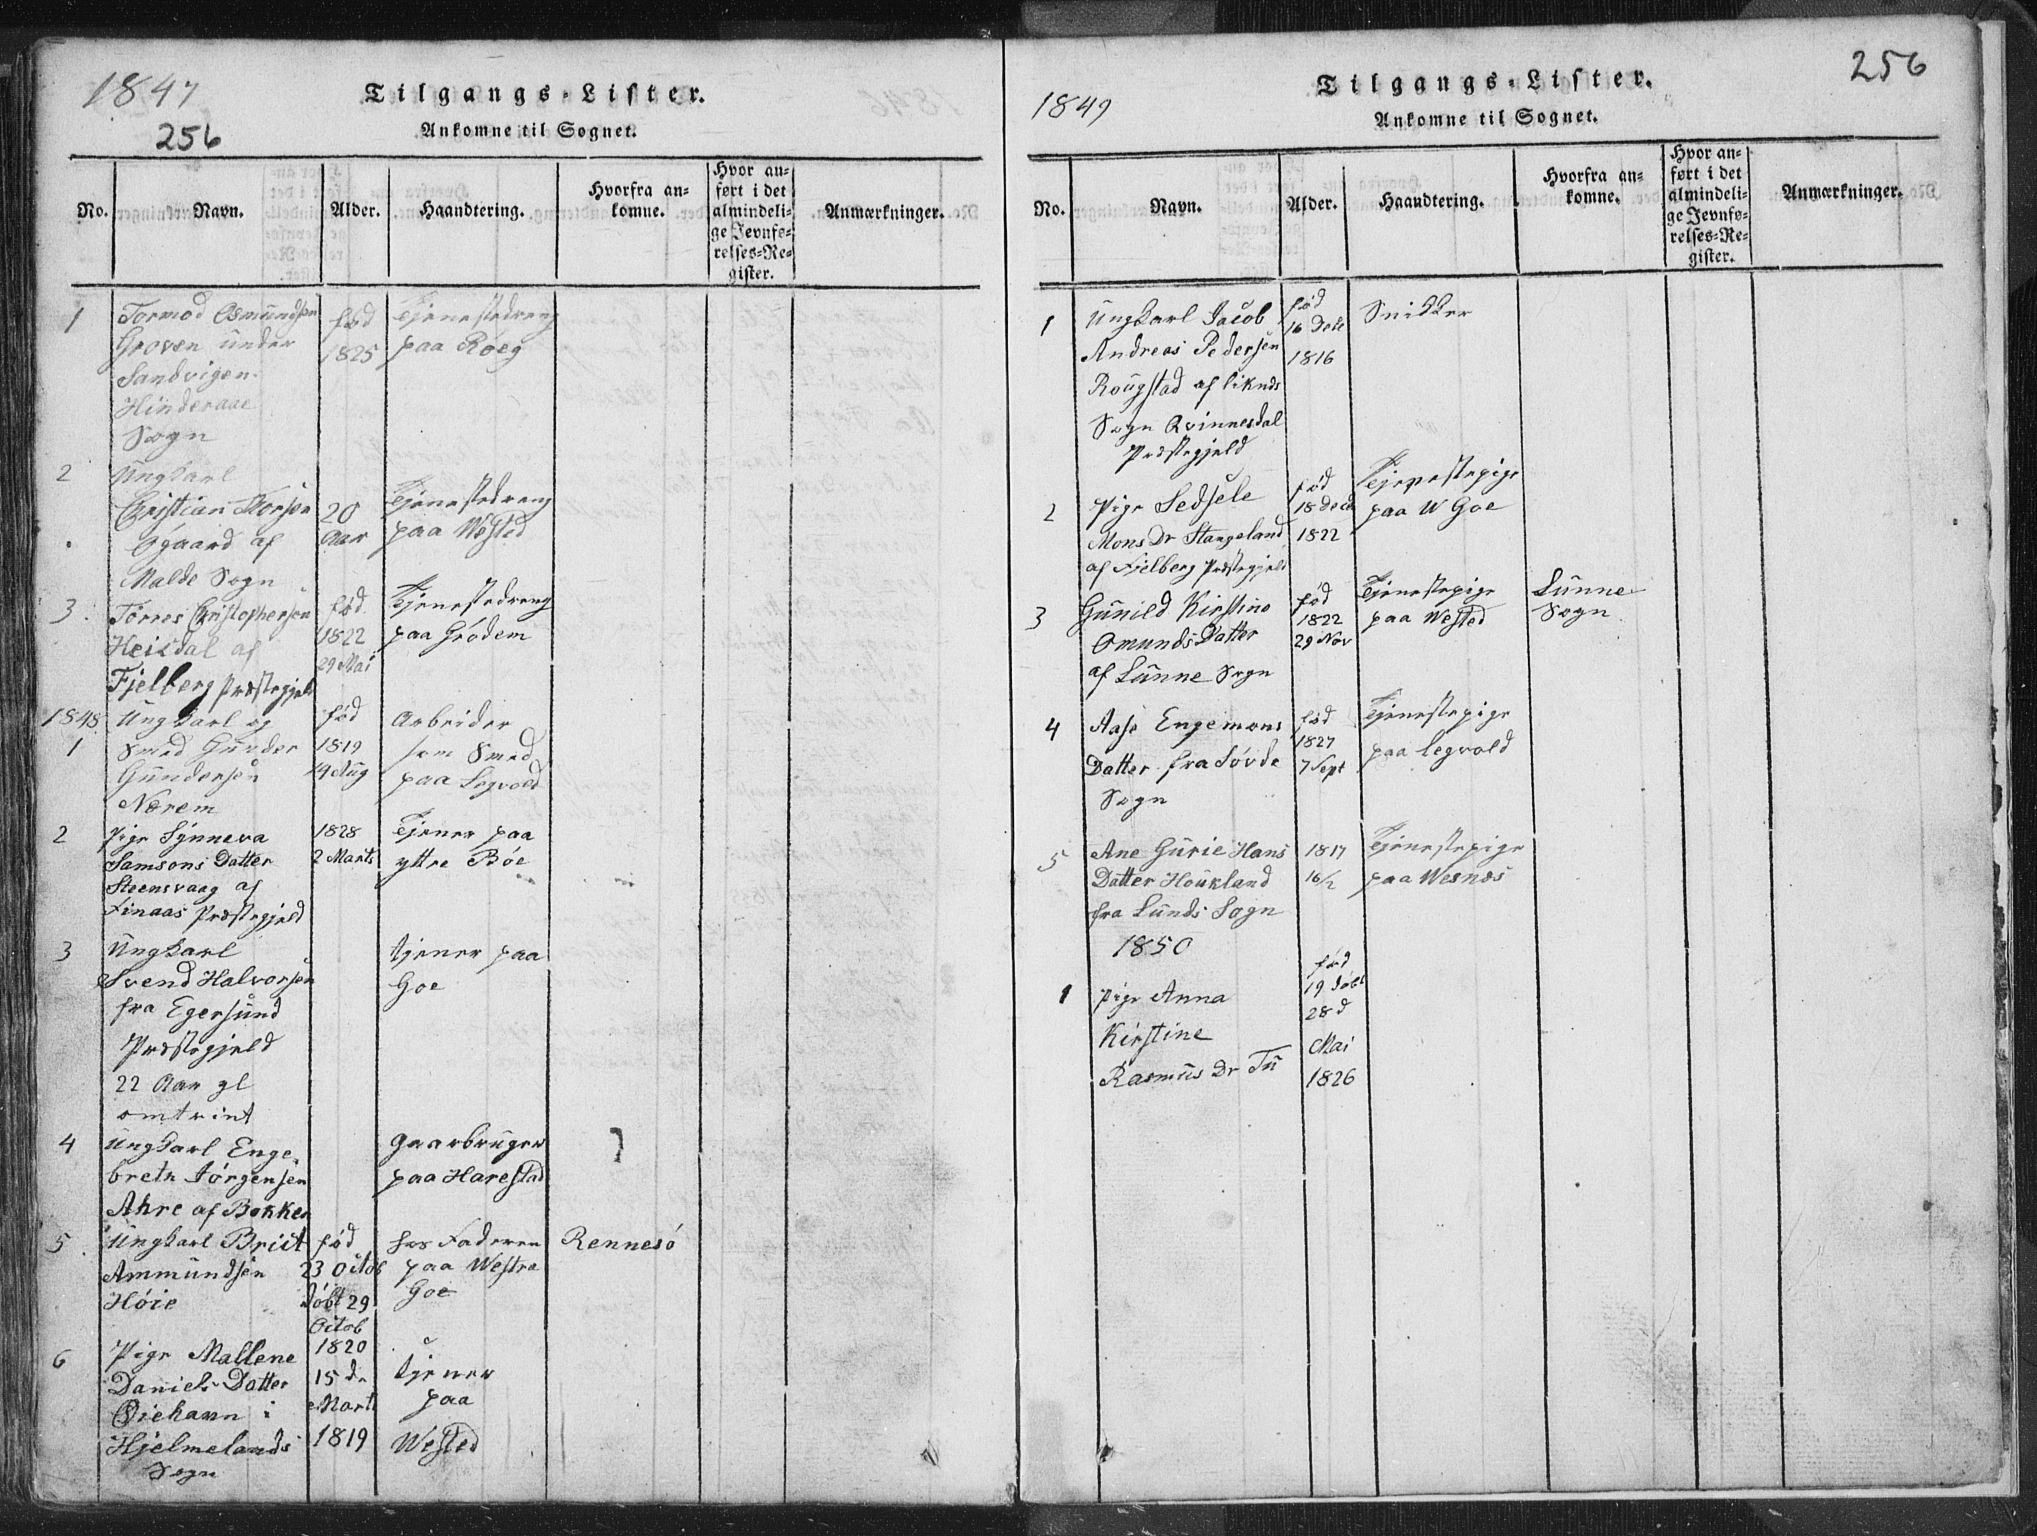 1847
256
Tilgangs-Lister.
Ankomne til Sognet.
No.
Navn.
Alder.
Haandtering.
Hvorfra an-
komne.
Hvor an-
ført i det
almindeli-
ge Jevnfø-
relses-Re-
gister.
Anmærkninger.
1
Tormod Osmundsen
Groven under
Sandvigen
Hinderaae
Sogn
fød
1825
Tjenestedreng
paa Röeg
2
Ungkarl
Christian Thorsen
Øgaard af
Malde Sogn
20
Aar
Tjenestedreng
paa Wested
3
Törres Christophersen
Heisdal af
Fjelberg Præstegjeld
fød
1822
29 Mai
Tjenestedreng
paa Grödem
1848
1
Ungkarl og
Smed Gunder
Gundersen
Nærem
fød
1819
14 Aug
Arbeider
som Smed
paa Legvold
2
Pige Synneva
Samsons Datter
Steensvaag af
Finaas Præstegjeld
1828
2 Marts
Tjener paa
yttre Böe
3
Ungkarl
Svend Halvorsen
fra Egersund
Præstegjeld
22 Aar gl
omtrint
tjener paa
Goe
4
Ungkarl Enge
breth Jörgensen
Ahre af Bokken
Gaarbruger
paa Harestad
5
Ungkarl Briet
Ammundsen
Höie
fød
23 Octob
döbt 29
Octob
1820
hos Faderen
paa Westre
Goe
Rennesö
6
Pige Mallene
Daniels Datter
Öiehavn i
Hjelmelands
Sogn
15 de
Marti
1819
tjener
paa
Wested
256
1849
Tilgangs-Lister.
Ankomne til Sognet.
No.
Navn.
Alder.
Haandtering.
Hvorfra an-
komne.
Hvor an-
ført i det
almindeli-
ge Jevnfø-
relses-Re-
gister.
Anmærkninger.
1
Ungkarl Jacob
Andreas Pedersen
Rougstad af liknds
Sogn Qvinnesdal
Præstegjeld
fød
16
1816
Snikker
2
Pige Sedsele
Mons Dr Stangeland
af Fjelberg Præstegjeld
fød
18 dec
1822
Tjenestepige
paa W Goe
3
Gunild Kirstine
Omunds Datter
af Lunne Sogn
fød
1822
29 Nov
Tjenestepige
paa Wested
Lunne
Sogn
4
Aase Engemons
Datter fra Sövde
Sogn
fød
1827
7 Sept
Tjenestepige
paa legvold
5
Ane Gurie Hans
Datter Houkland
fra Lunds Sogn
1817
16/2
Tjenestepige
paa Wesnes
1850
1
Pige Anna
Kirstine
Rasmus Dr Tu
fød
19 döbt
28 d
Mai
1826